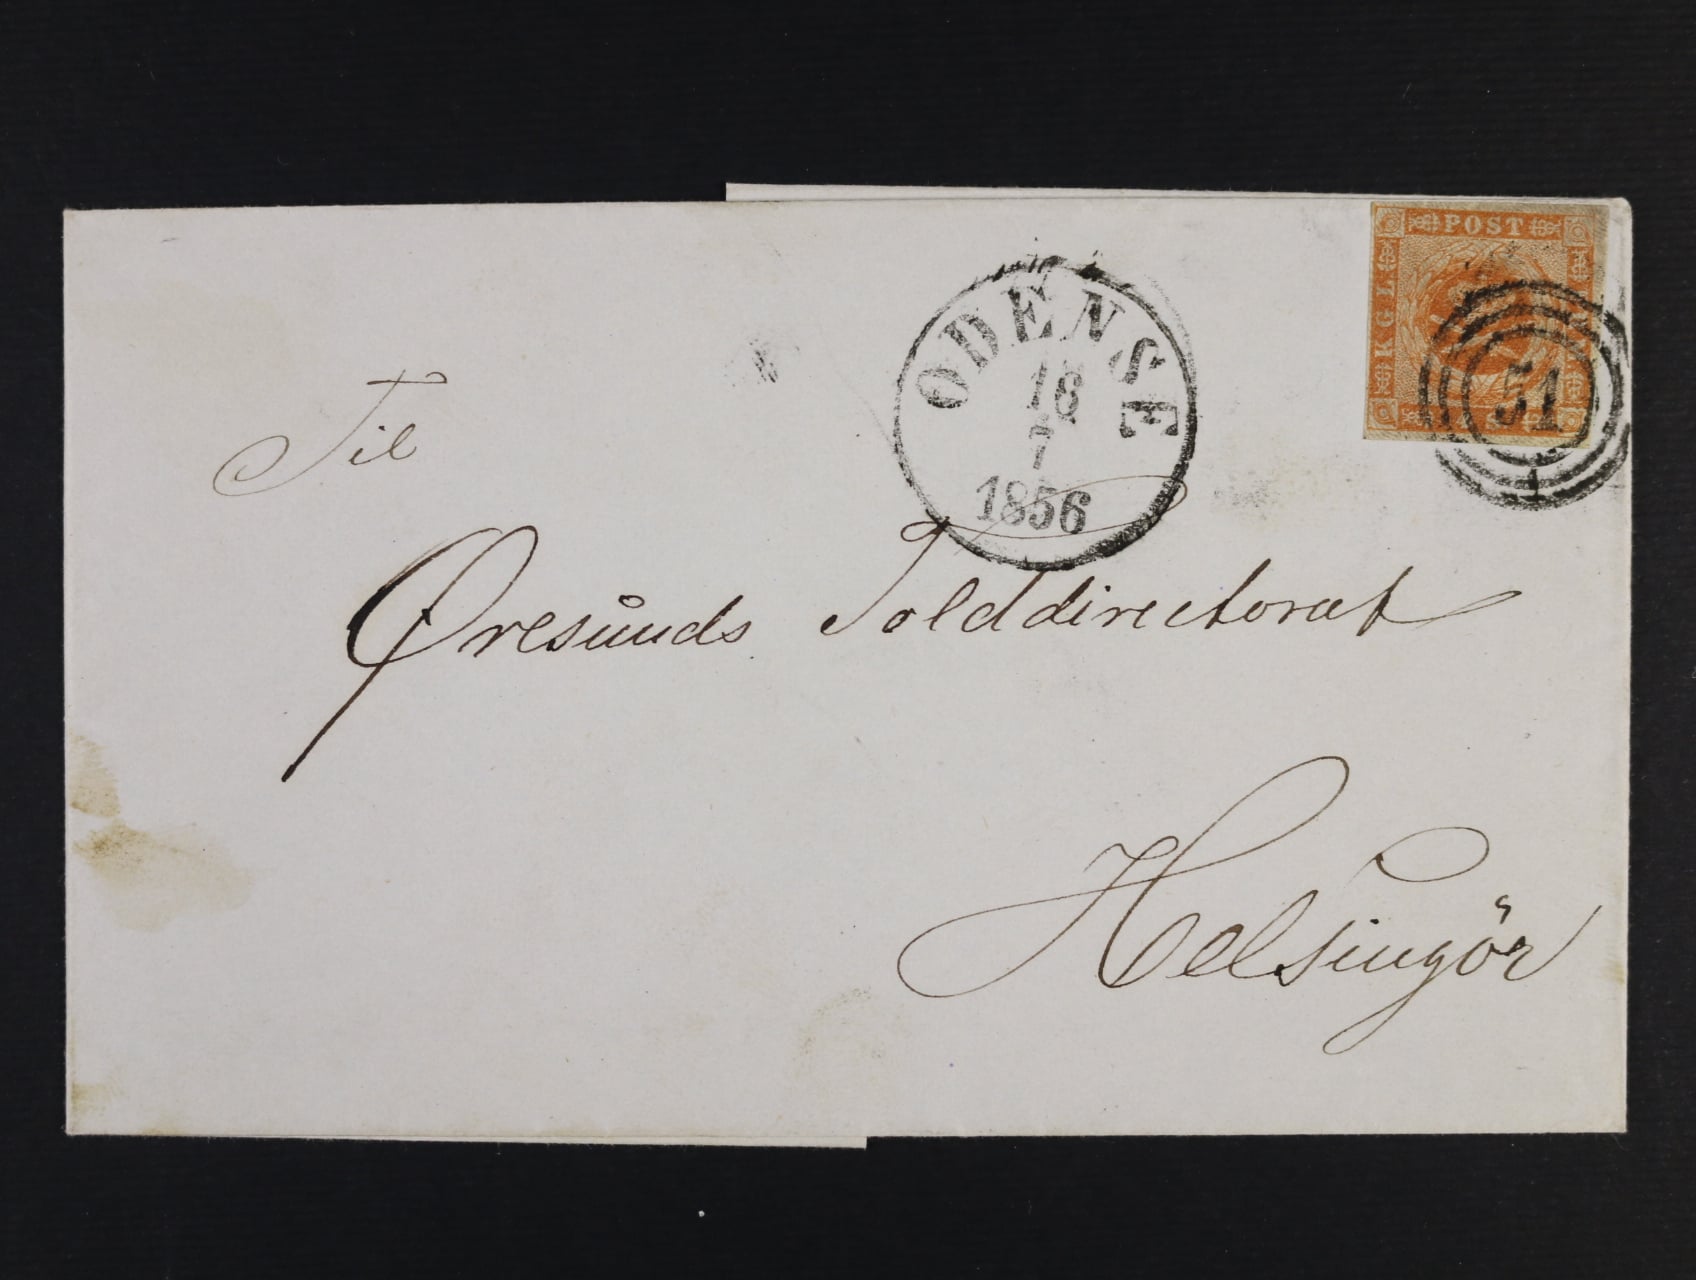 POST
KGL
51
1
ODENSE
18
7
1856
Til
Øresunds Tolddirectorat
Helsingör